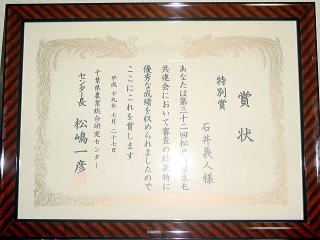 賞状
特別賞
石井義人様
あなたは第三十二回松戸 立毛
共進会において審査の結果特に
優秀な成績を収められましたので
ここにこれを賞します
平成十九年七月二十七日
千葉県農業総合研究センター
センター長 松嶋一彦